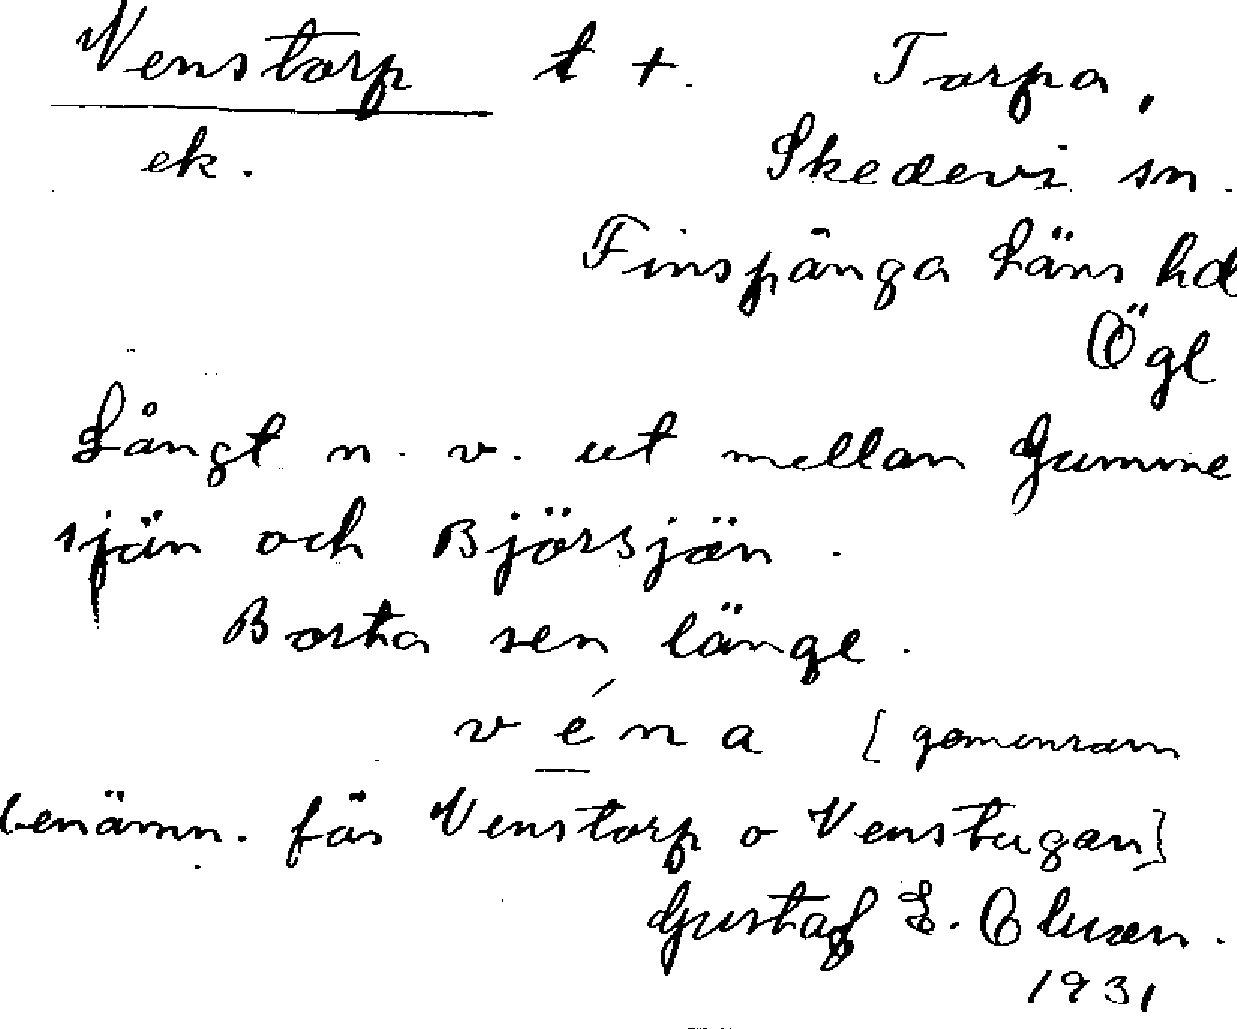 Venstorp t +. Torpa,
ek. Skedevi sn.
Finspånga Läns hd
Ögl
Långt n. v. ut mellan Gumme
sjön och Björsjön.
Borta sen länge.
v é n a [gemensam
benämn. för Venstorp o Venstugan]
Gustaf E. Cluxen.
1931